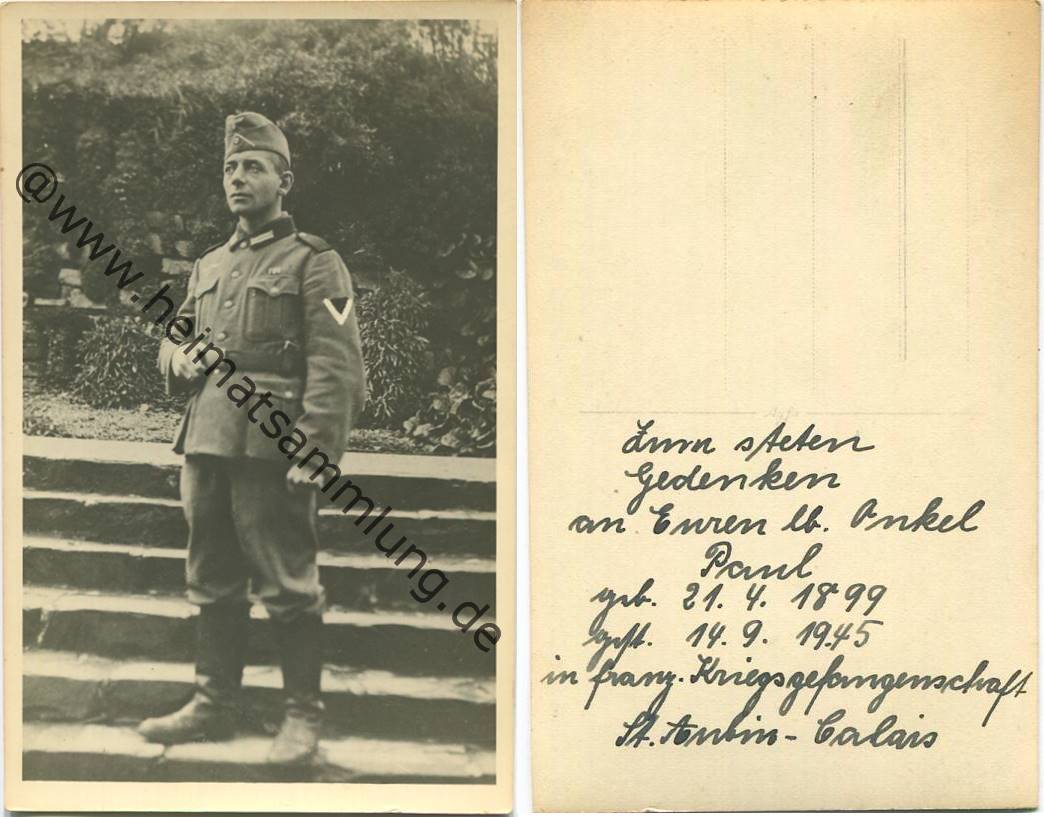 @www.heimatsammlung.de
Zum steten
Gedenken
an Euren lb. Onkel
Paul
geb. 21. 4. 1899
gest. 14. 9. 1945
in franz. Kriegsgefangenschaft
St. Aubin - Calais